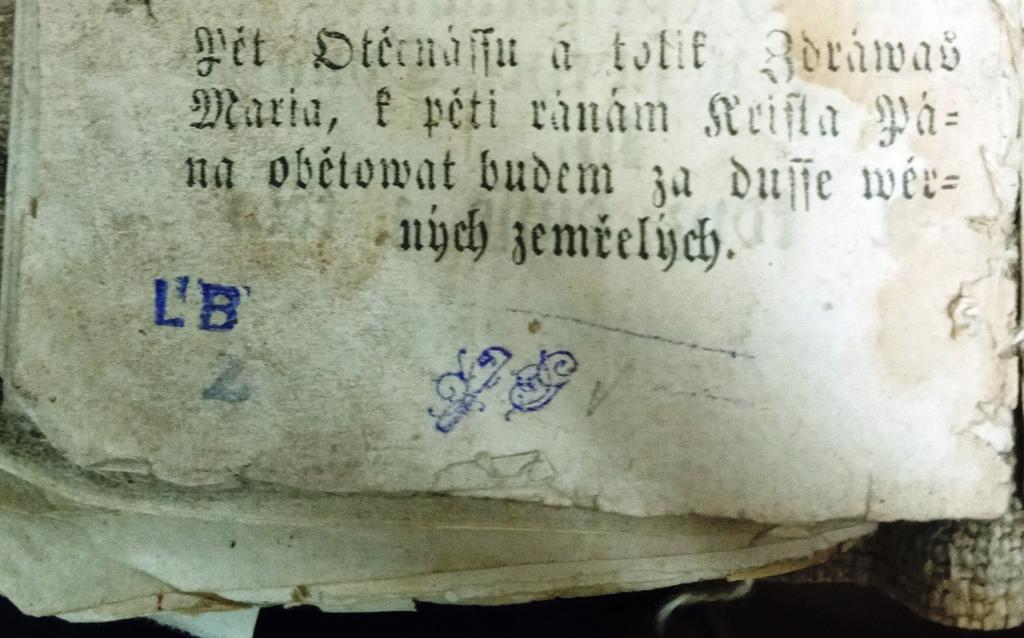 Pět Otčenássu a tolik Zdráwas
Maria, k pěti ránám Krista Pá=
na obětowat budem za dusse wěr=
ných zemřelých.
L'B'
2